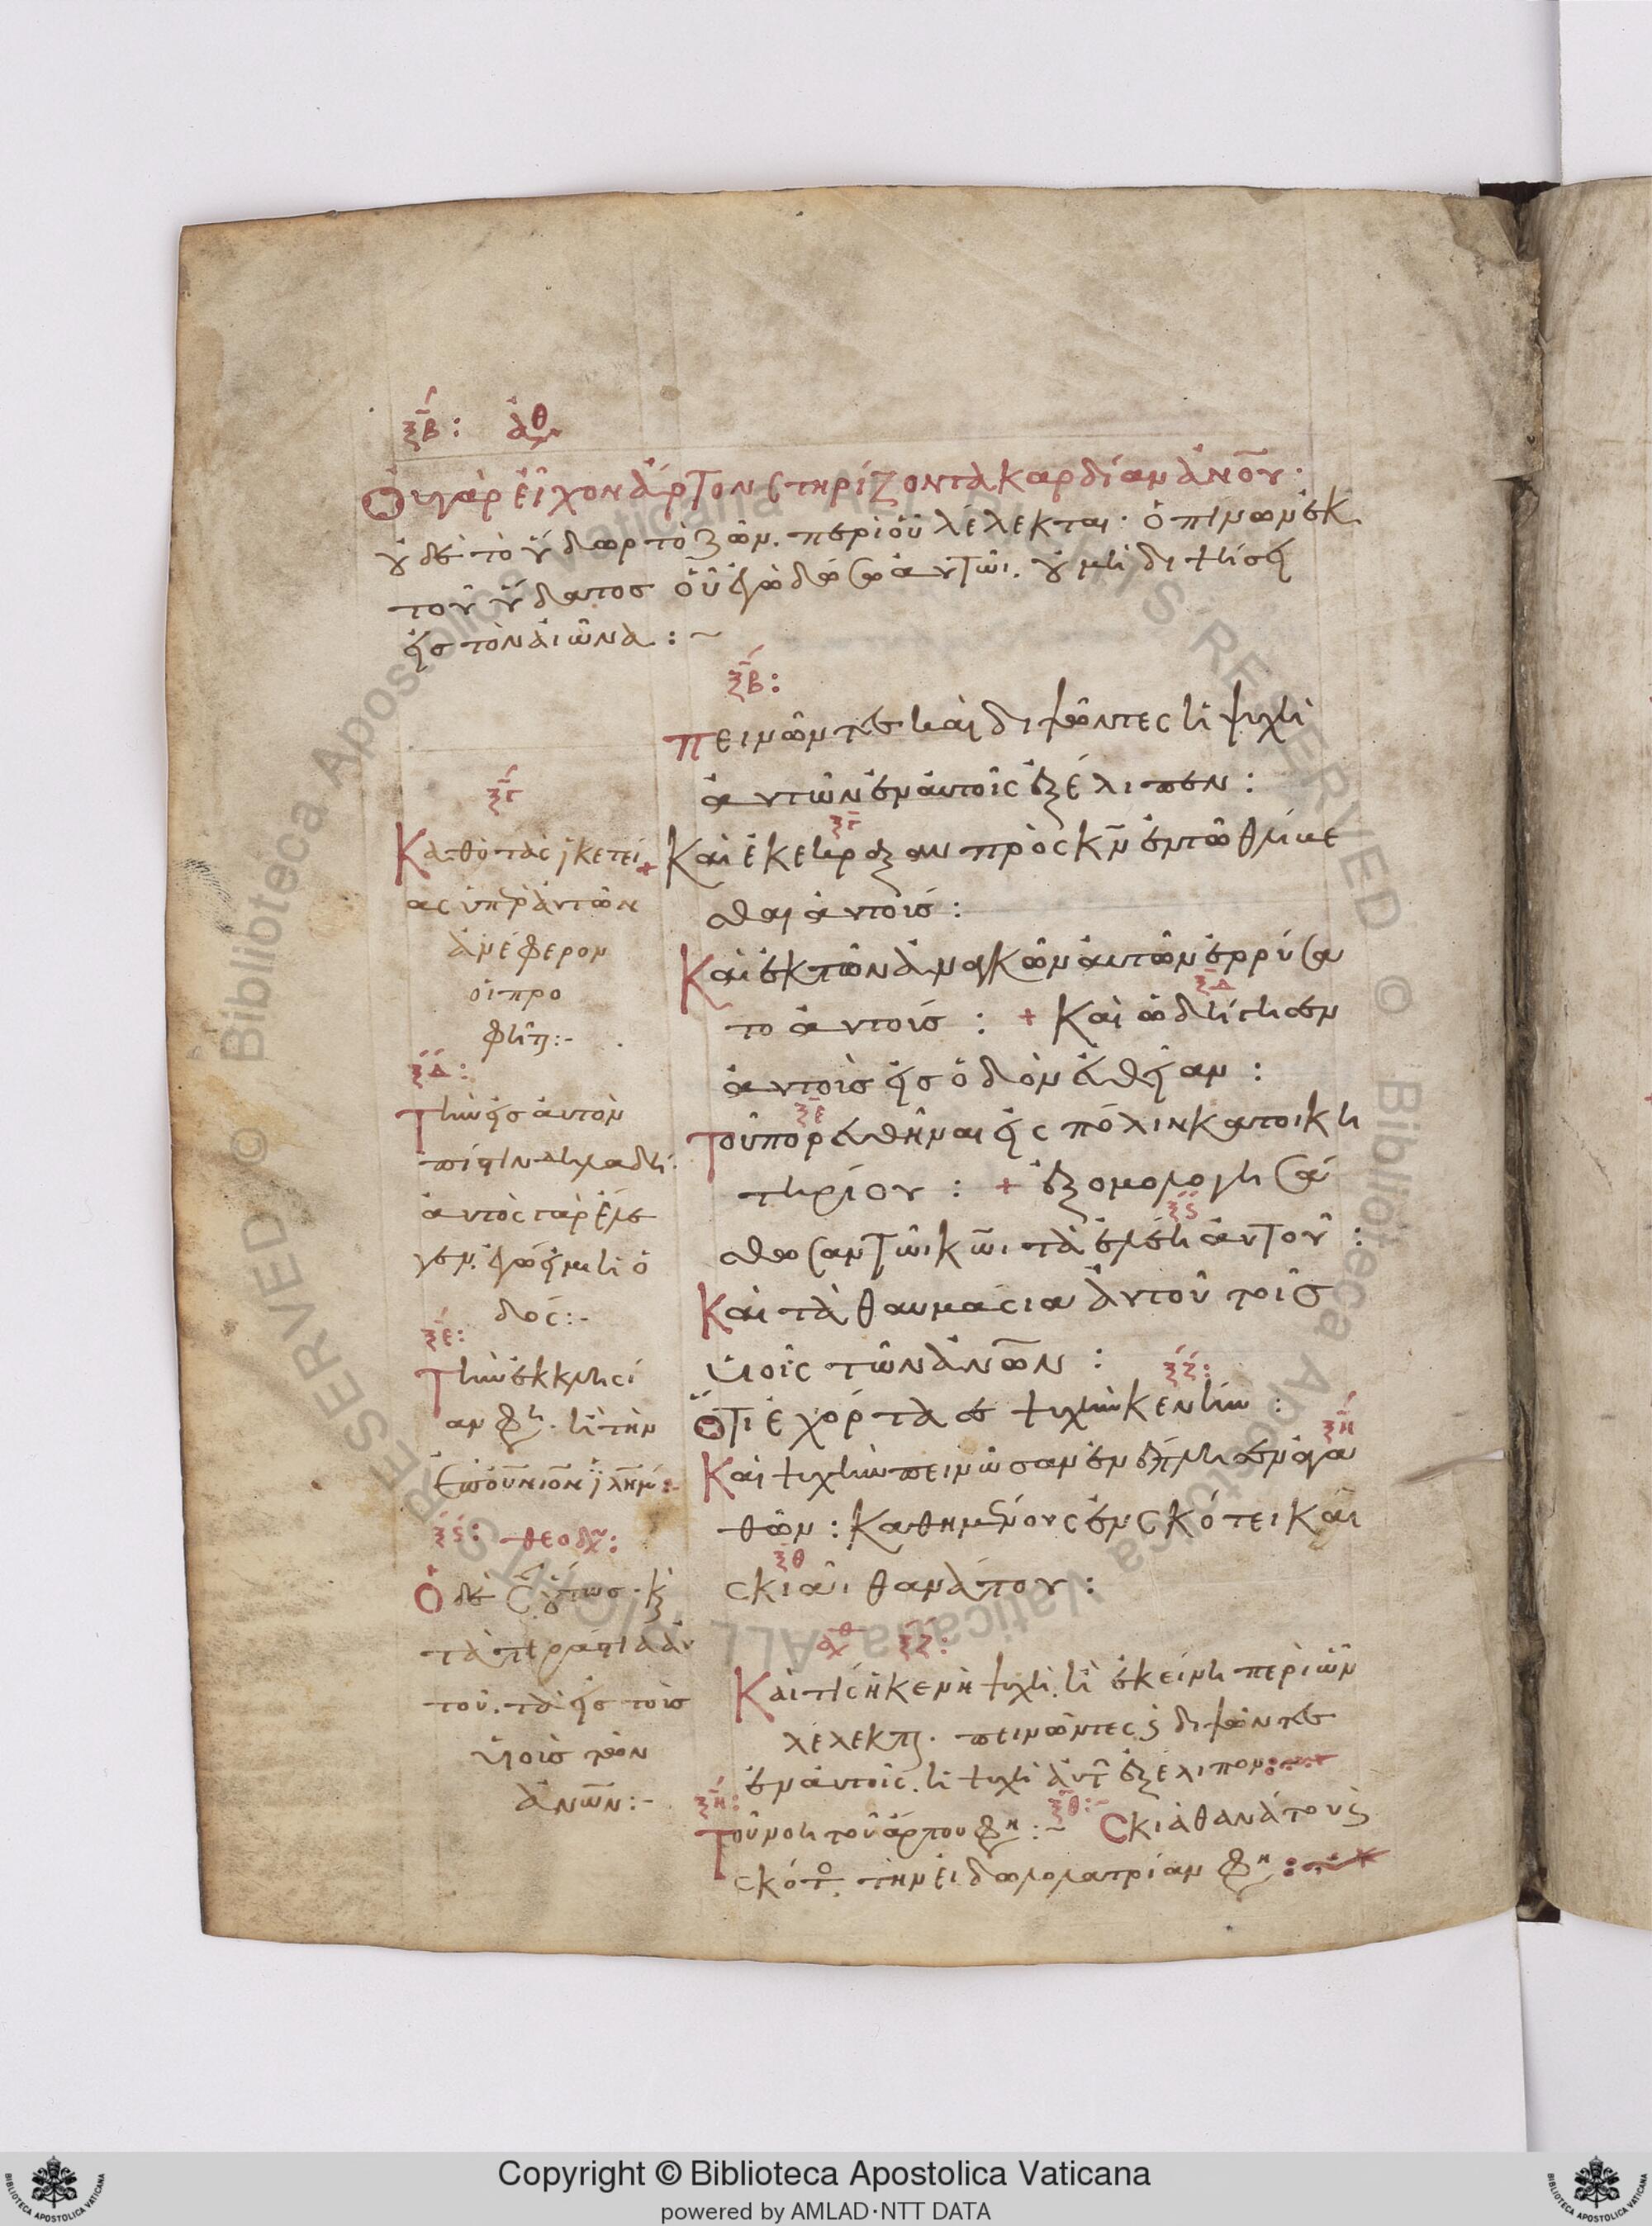 ξβ: ἀθ
Οὐ γὰρ εἶχον ἄρτον στηρίζοντα καρδίαν ἀνου·
οὐδὲ τὸ ὕδωρ τὸ ζῶν. περὶ οὗ λέλεκται· ὁ πίνων ἐκ
τοῦ ὕδατος οὗ ἐγὼ δώσω αὐτῶι. οὐ μὴ διψήσει
εἰς τὸν αἰῶνα: ~
ξβ:
πεινῶντες καὶ διψῶντες ἡ ψυχὴ
αὐτῶν ἐν αὐτοῖς ἐξέλιπεν:
ξγ
Καὶ ἐκέκραξαν πρὸς κν ἐν τῶ θλίβε
σθαι αὐτούς:
Καὶ ἐκ τῶν ἀναγκῶν αὐτῶν ἐρρύσα
ξδ
το αὐτούς: + Καὶ ὡδήγησεν
αὐτοὺς εἰς ὁδὸν εὐθεῖαν:
ξε
Τοῦ πορευθῆναι εἰς πόλιν κατοικη
τηρίου: + ἐξομολογησά
ξς
σθωσαν τῶι κωι τὰ ἐλέη αὐτοῦ:
Καὶ τὰ θαυμάσια αὐτοῦ τοῖς
υἱοῖς τῶν ἀνων: ξζ:
Ὅτι ἐχόρτασε ψυχὴν κενήν:
ξη
Καὶ ψυχὴν πεινῶσαν ἐνέπλησεν ἀγα
θῶν: Καθημένους ἐν σκότει καὶ
ξθ
σκιᾶι θανάτου:
ξγ
Καθὸ τὰς ἱκετεί
ας ὑπὲρ αὐτῶν
ἀνέφερον
οἱ προ
φῆται:-
ξδ:
Τὴν εἰς αὐτὸν
πίστιν δηλαδή.
αὐτὸς γὰρ ἔλε
γεν. ἐγώ εἰμι ἡ ὁ
δός:-
ξε:
Τὴν ἐκκλησί
αν φη· ἢ τὴν
ἐπουνιον ιλημ:-
ξς: θεοδχ:
Ὁ δὲ
τὰ τεράστια αὐ
τοῦ. τὰ εἰς τοὺς
υἱοὺς τῶν
ἀνων:-
αθ ξζ:
Καὶ τίς ἡ κενὴ ψυχὴ. ἢ ἐκείνη περὶ ὧν
λέλεκται. πεινῶντες καὶ διψῶντες
ἐν αὐτοῖς. ἡ ψυχὴ αὐτ ἐξέλιπον:
ξη: ξθ:-
Τοῦ νοητοῦ ἄρτου φη:~ Σκιὰ θανάτου καὶ
σκότο, τὴν εἰδωλολατρίαν φη:
Copyright © Biblioteca Apostolica Vaticana
powered by AMLAD·NTT DATA